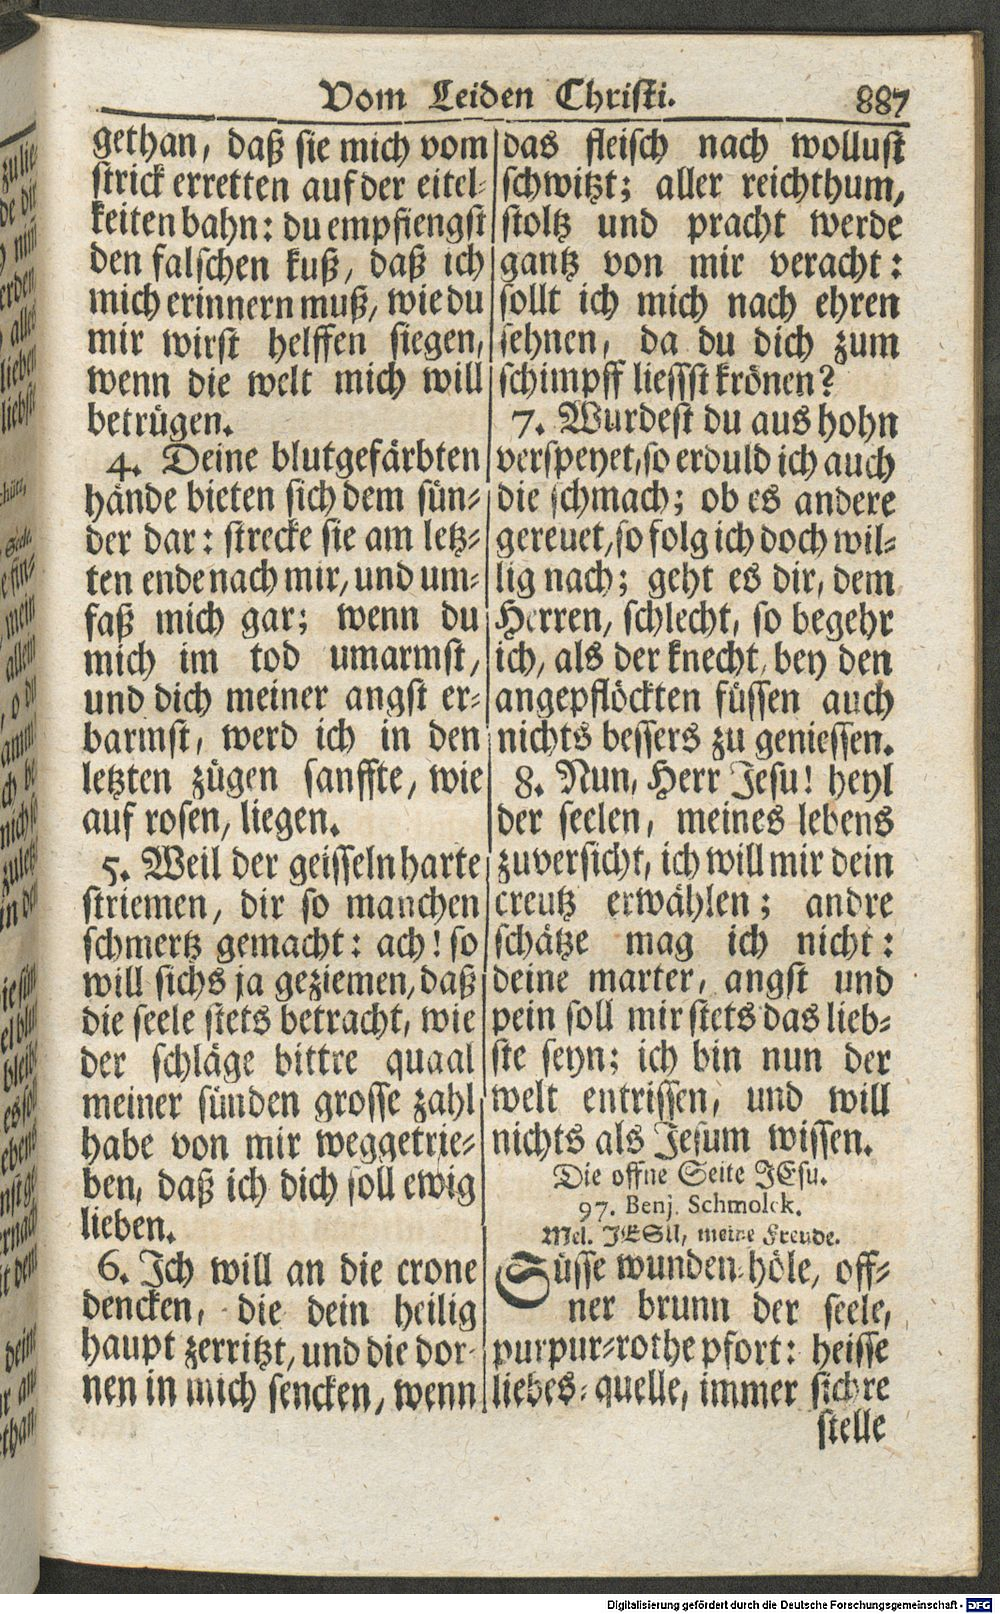 Vom Leiden Christi. 887
gethan, daß sie mich vom
strick erretten auf der eitel-
keiten bahn: du empfiengst
den falschen kuß, daß ich
mich erinnern muß, wie du
mir wirst helffen siegen,
wenn die welt mich will
betrügen.
4. Deine blutgefärbten
hände bieten sich dem sün-
der dar: strecke sie am letz-
ten ende nach mir, und um-
faß mich gar; wenn du
mich im tod umarmst,
und dich meiner angst er-
barmst, werd ich in den
letzten zügen sanffte, wie
auf rosen, liegen.
5. Weil der geisseln harte
striemen, dir so manchen
schmertz gemacht: ach! so
will sichs ja geziemen, daß
die seele stets betracht, wie
der schläge bittre quaal
meiner sünden grosse zahl
habe von mir weggetrie-
ben, daß ich dich soll ewig
lieben.
6. Ich will an die crone
dencken, die dein heilig
haupt zerritzt, und die dor-
nen in mich sencken, wenn
das fleisch nach wollust
schwitzt; aller reichthum,
stoltz und pracht werde
gantz von mir veracht:
sollt ich mich nach ehren
sehnen, da du dich zum
schimpff liessst krönen?
7. Wurdest du aus hohn
verspeyet, so erduld ich auch
die schmach; ob es andere
gereuet, so folg ich doch wil-
lig nach; geht es dir, dem
Herren, schlecht, so begehr
ich, als der knecht, bey den
angepflöckten füssen auch
nichts bessers zu geniessen.
8. Nun, Herr Jesu! heyl
der seelen, meines lebens
zuversicht, ich will mir dein
creutz erwählen; andre
schätze mag ich nicht:
deine marter, angst und
pein soll mir stets das lieb-
ste seyn; ich bin nun der
welt entrissen, und will
nichts als Jesum wissen.
Die offne Seite JEsu.
97. Benj. Schmolck.
Mel. JESU, meine Freude.
Süsse wunden-höle, off-
ner brunn der seele,
purpur-rothe pfort: heisse
liebes-quelle, immer sichre
stelle
Digitalisierung gefördert durch die Deutsche Forschungsgemeinschaft - DFG